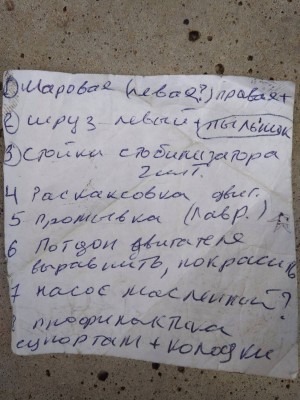 1) Шаровая (левая?) правая+
2) шруз левый + пыльник
3) Стойки стобилизатора
2 шт.
4 Раскаксовка двиг.
5 Промывка (Лавр.)
6 Потдон двигателя
выравнить, покрасить
7 насос масленний?
профилактика
супортам + колодки